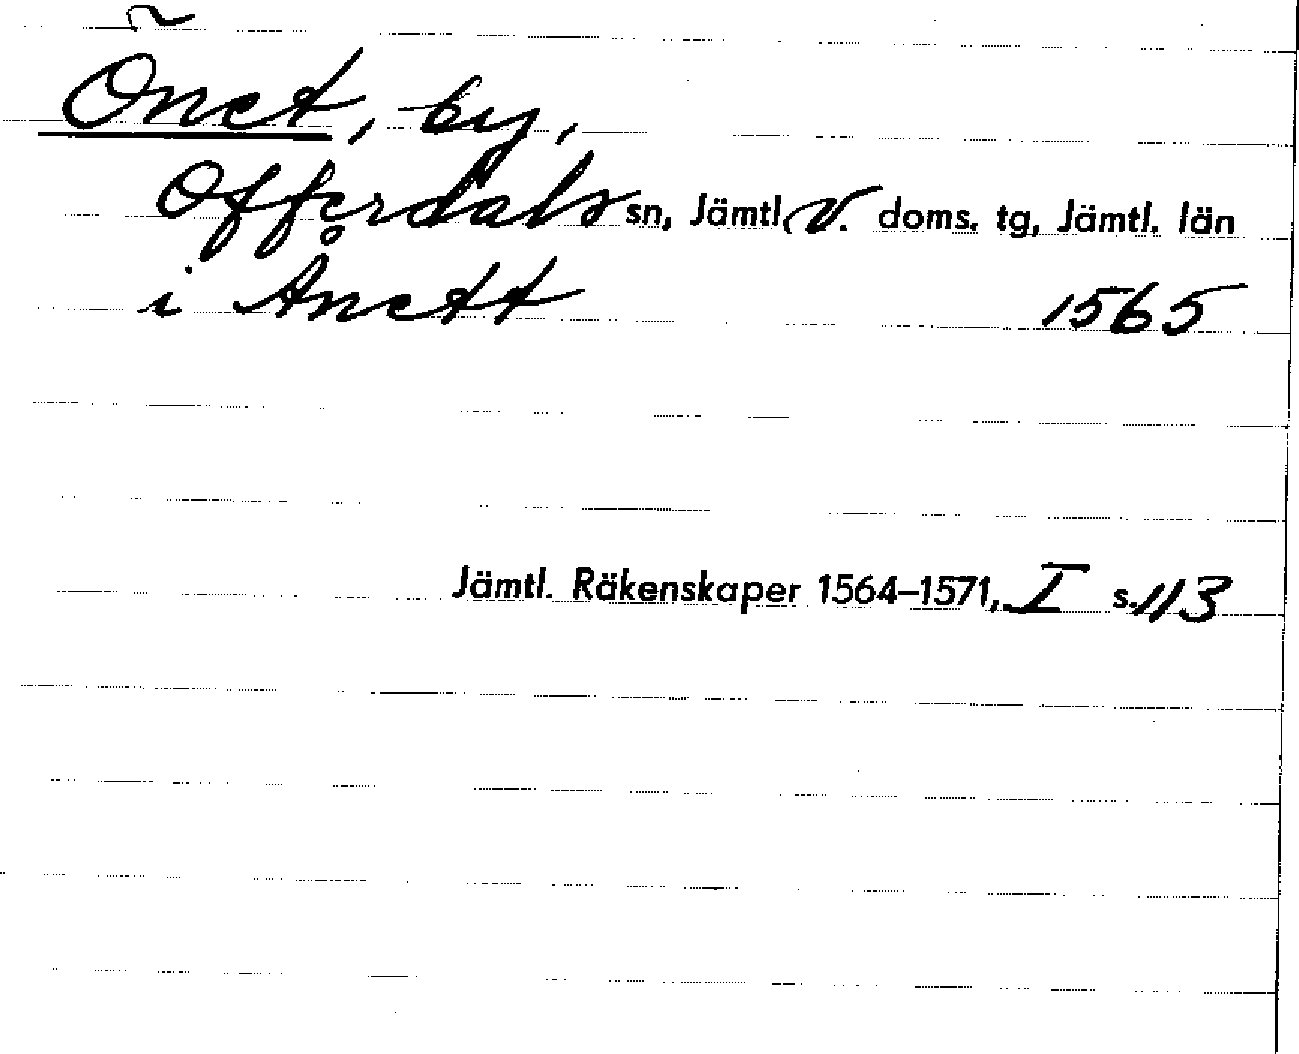 Önet, by,
Offerdals sn, Jämtl. V. doms. tg, Jämtl. län
i Ånett 1565
Jämtl. Räkenskaper 1564–1571, I s. 113